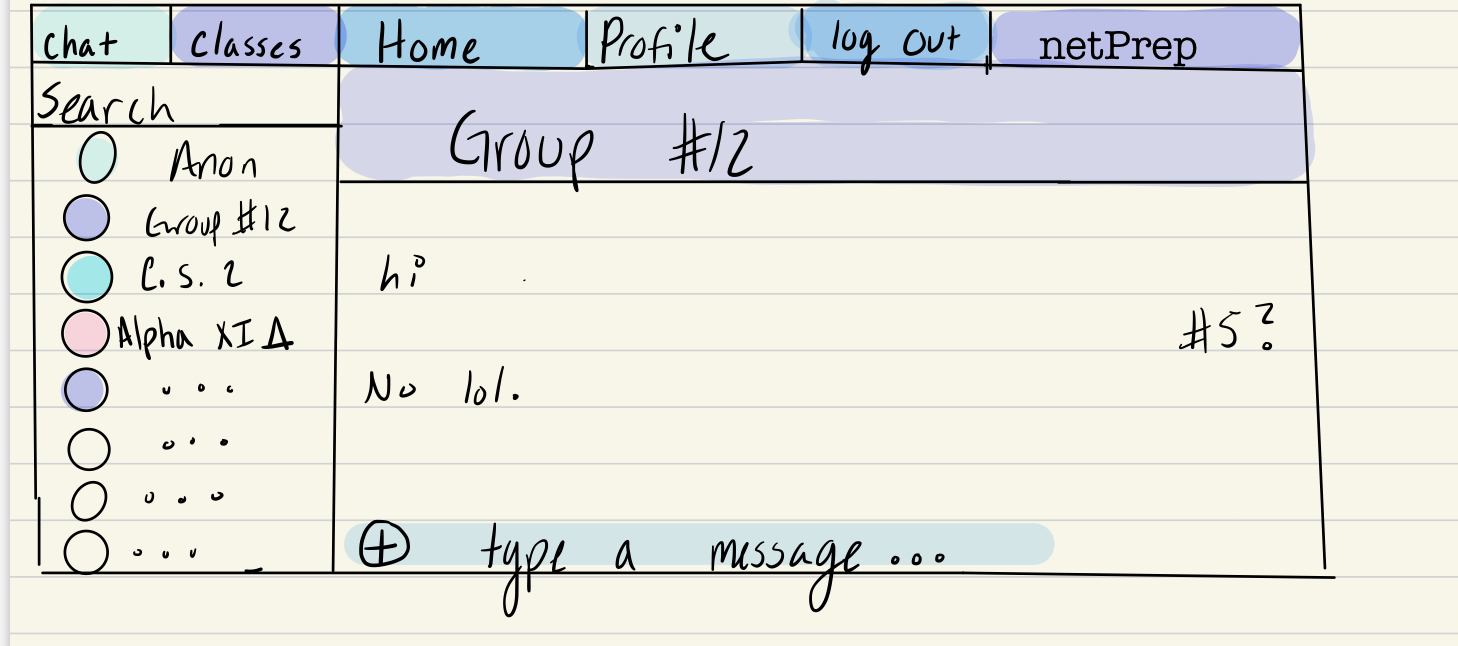 chat classes Home Profile log out netPrep
Search
Group #12
Anon
Group #12
C.s. 2
Alpha XI Δ
...
...
...
...
hi
#5?
No lol.
+ type a message ...